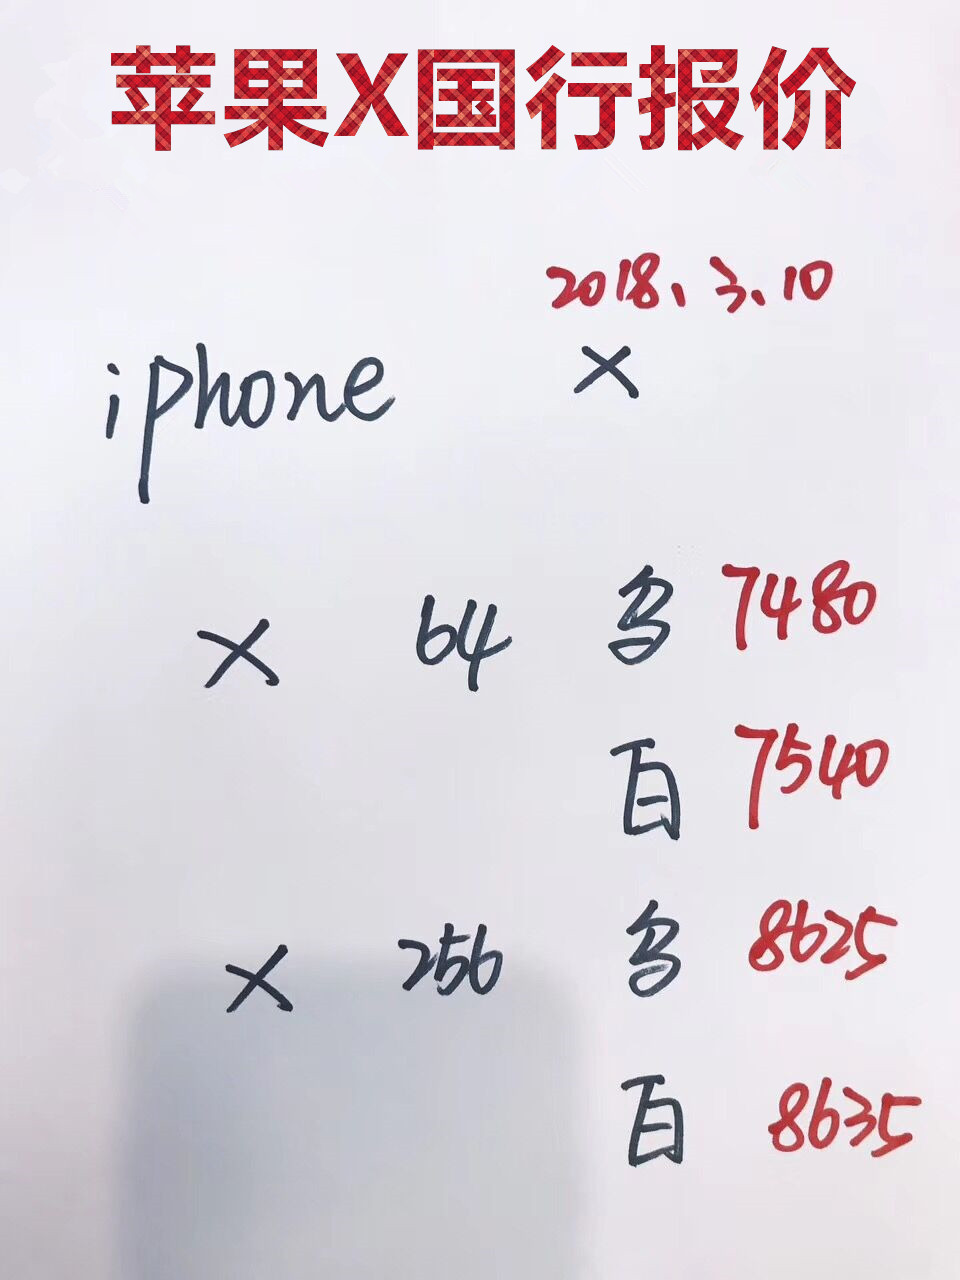 苹果X国行报价
2018、3、10
iphone X
X 64 乌 7480
百 7540
X 256 乌 8625
百 8635